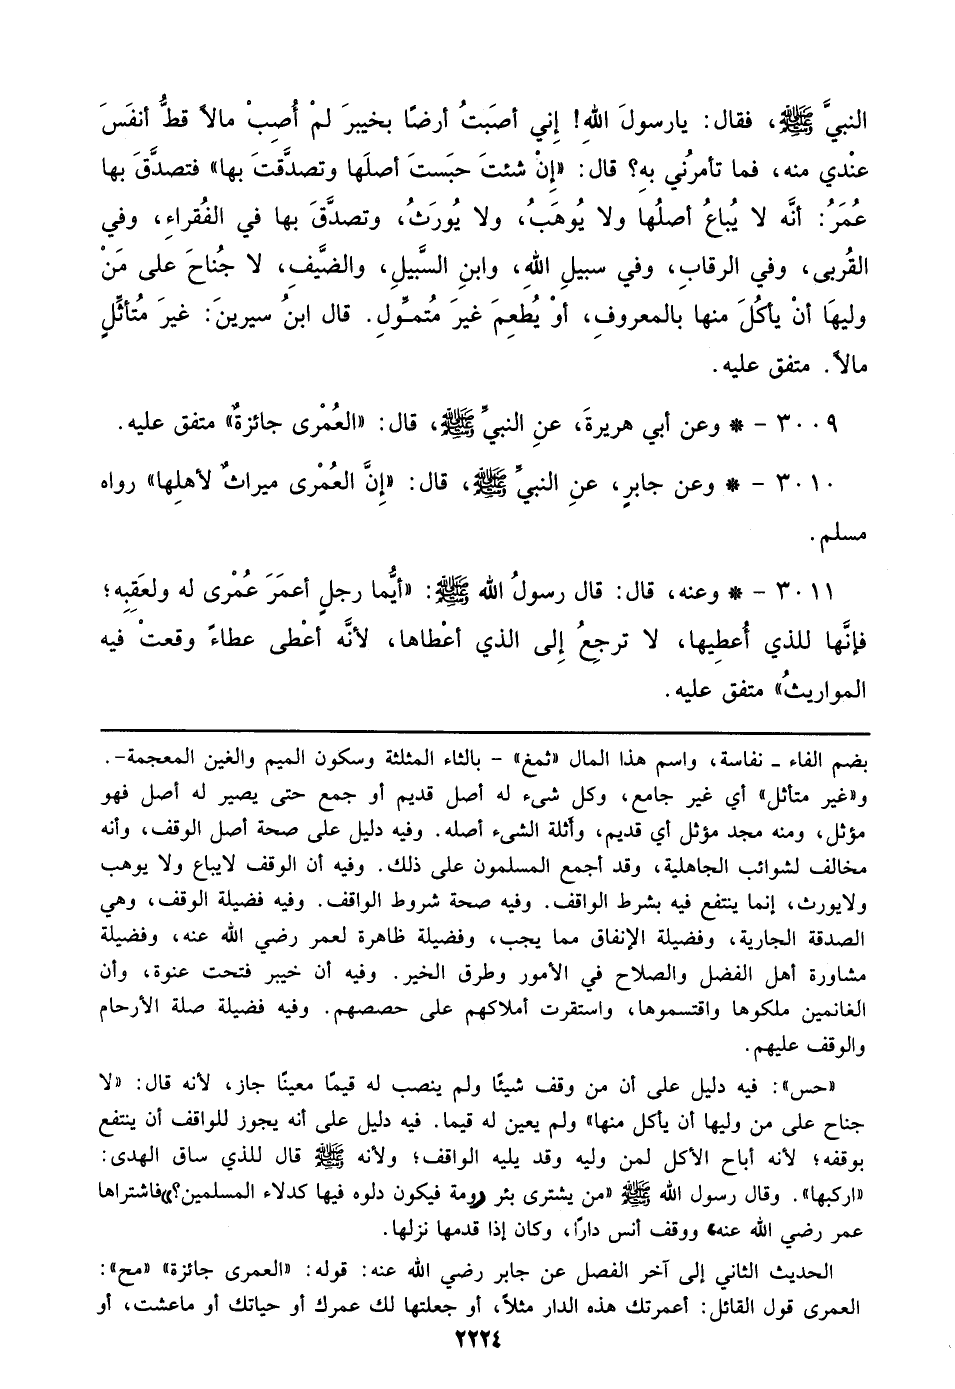 النبيَّ ﷺ، فقال: يارسولَ اللهِ! إني أصَبتُ أرضًا بخيبرَ لمْ أُصِبْ مالاً قطُّ أنفَسَ
عندي منه، فما تأمرُني بهِ؟ قال: «إنْ شئتَ حبَستَ أصلَها وتصدَّقتَ بها» فتصدَّقَ بها
عُمَرُ: أنَّه لا يُباعُ أصلُها ولا يُوهَبُ، ولا يُورَثُ، وتصدَّقَ بها في الفُقراءِ، وفي
القُربى، وفي الرقابِ، وفي سبيلِ اللهِ، وابنِ السَّبيلِ، والضَّيفِ، لا جُناحَ على مَنْ
وليهَا أنْ يأكُلَ منها بالمعروفِ، أوْ يُطعِمَ غيرَ مُتموِّلٍ. قال ابنُ سيرينَ: غيرَ مُتأثِّلٍ
مالاً. متفق عليه.
٣٠٠٩ - * وعن أبي هريرةَ، عنِ النبيِّ ﷺ، قال: «العُمْرى جائزةٌ» متفق عليه.
٣٠١٠ - * وعن جابرٍ، عنِ النبيِّ ﷺ، قال: «إنَّ العُمْرى ميراثٌ لأهلِها» رواه
مسلم.
٣٠١١ - * وعنه، قال: قال رسولُ الله ﷺ: «أيُّما رجلٍ أعمَرَ عُمْرى له ولعَقِبِه؛
فإنَّها للذي أُعطِيها، لا ترجِعُ إلى الذي أعْطاها، لأنَّه أعْطى عطاءً وقعتْ فيه
المواريثُ» متفق عليه.
بضم الفاء ـ نفاسة، واسم هذا المال «ثمغ» - بالثاء المثلثة وسكون الميم والغين المعجمة-.
و«غير متأثل» أي غير جامع، وكل شىء له أصل قديم أو جمع حتى يصير له أصل فهو
مؤثل، ومنه مجد مؤثل أي قديم، وأثلة الشىء أصله. وفيه دليل على صحة أصل الوقف، وأنه
مخالف لشوائب الجاهلية، وقد أجمع المسلمون على ذلك. وفيه أن الوقف لايباع ولا يوهب
ولايورث، إنما ينتفع فيه بشرط الواقف. وفيه صحة شروط الواقف. وفيه فضيلة الوقف، وهي
الصدقة الجارية، وفضيلة الإنفاق مما يجب، وفضيلة ظاهرة لعمر رضي الله عنه، وفضيلة
مشاورة أهل الفضل والصلاح في الأمور وطرق الخير. وفيه أن خيبر فتحت عنوة، وأن
الغانمين ملكوها واقتسموها، واستقرت أملاكهم على حصصهم. وفيه فضيلة صلة الأرحام
والوقف عليهم.
«حس»: فيه دليل على أن من وقف شيئًا ولم ينصب له قيمًا معينًا جاز، لأنه قال: «لا
جناح على من وليها أن يأكل منها» ولم يعين له قيما. فيه دليل على أنه يجوز للواقف أن ينتفع
بوقفه؛ لأنه أباح الأكل لمن وليه وقد يليه الواقف؛ ولأنه ﷺ قال للذي ساق الهدى:
«اركبها». وقال رسول الله ﷺ «من يشترى بئر رومة فيكون دلوه فيها كدلاء المسلمين؟» فاشتراها
عمر رضي الله عنه، ووقف أنس دارًا، وكان إذا قدمها نزلها.
الحديث الثاني إلى آخر الفصل عن جابر رضي الله عنه: قوله: «العمرى جائزة» «مح»:
العمرى قول القائل: أعمرتك هذه الدار مثلاً، أو جعلتها لك عمرك أو حياتك أو ماعشت، أو
٢٢٢٤